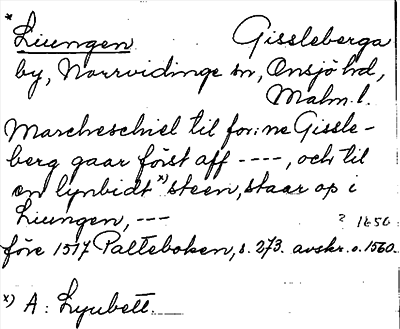 *
Liungen Gissleberga
by, Norrvidinge sn, Onsjö hd,
Malm. l.
Marcheschiel til for:ne Gissle-
berg gaar först aff ----, och til
en lynbidt x) steen, staar op i
Liungen, ---
? 1650
före 1517 Palteboken, s. 273. avskr. o. 1560.
x) A: Lyubett.